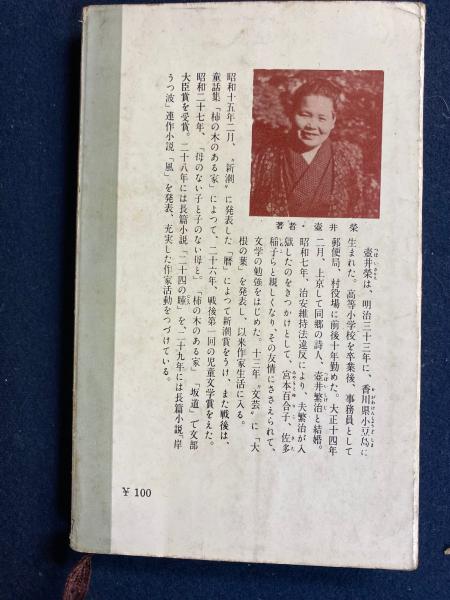 著者・壺井栄
壺井栄は、明治三十三年に、香川県小豆島に
生まれた。高等小学校を卒業後、事務員として
郵便局、村役場に前後十年勤めた。大正十四年
二月、上京して同郷の詩人、壺井繁治と結婚。
昭和七年、治安維持法違反により、夫繁治が入
獄したのをきっかけとして、宮本百合子、佐多
稲子らと親しくなり、その友情にささえられて、
文学の勉強をはじめた。十三年〝文芸〟に「大
根の葉」を発表し、以来作家生活に入る。
昭和十五年二月、〝新潮〟に発表した「暦」によって新潮賞をうけ、また戦後は、
童話集「柿の木のある家」によって、二十六年、戦後第一回の児童文学賞をえた。
昭和二十七年、「母のない子と子のない母と」「柿の木のある家」「坂道」で文部
大臣賞を受賞。二十八年には長篇小説「二十四の瞳」を、二十九年には長篇小説「岸
うつ波」連作小説「風」を発表、充実した作家活動をつづけている。
￥100